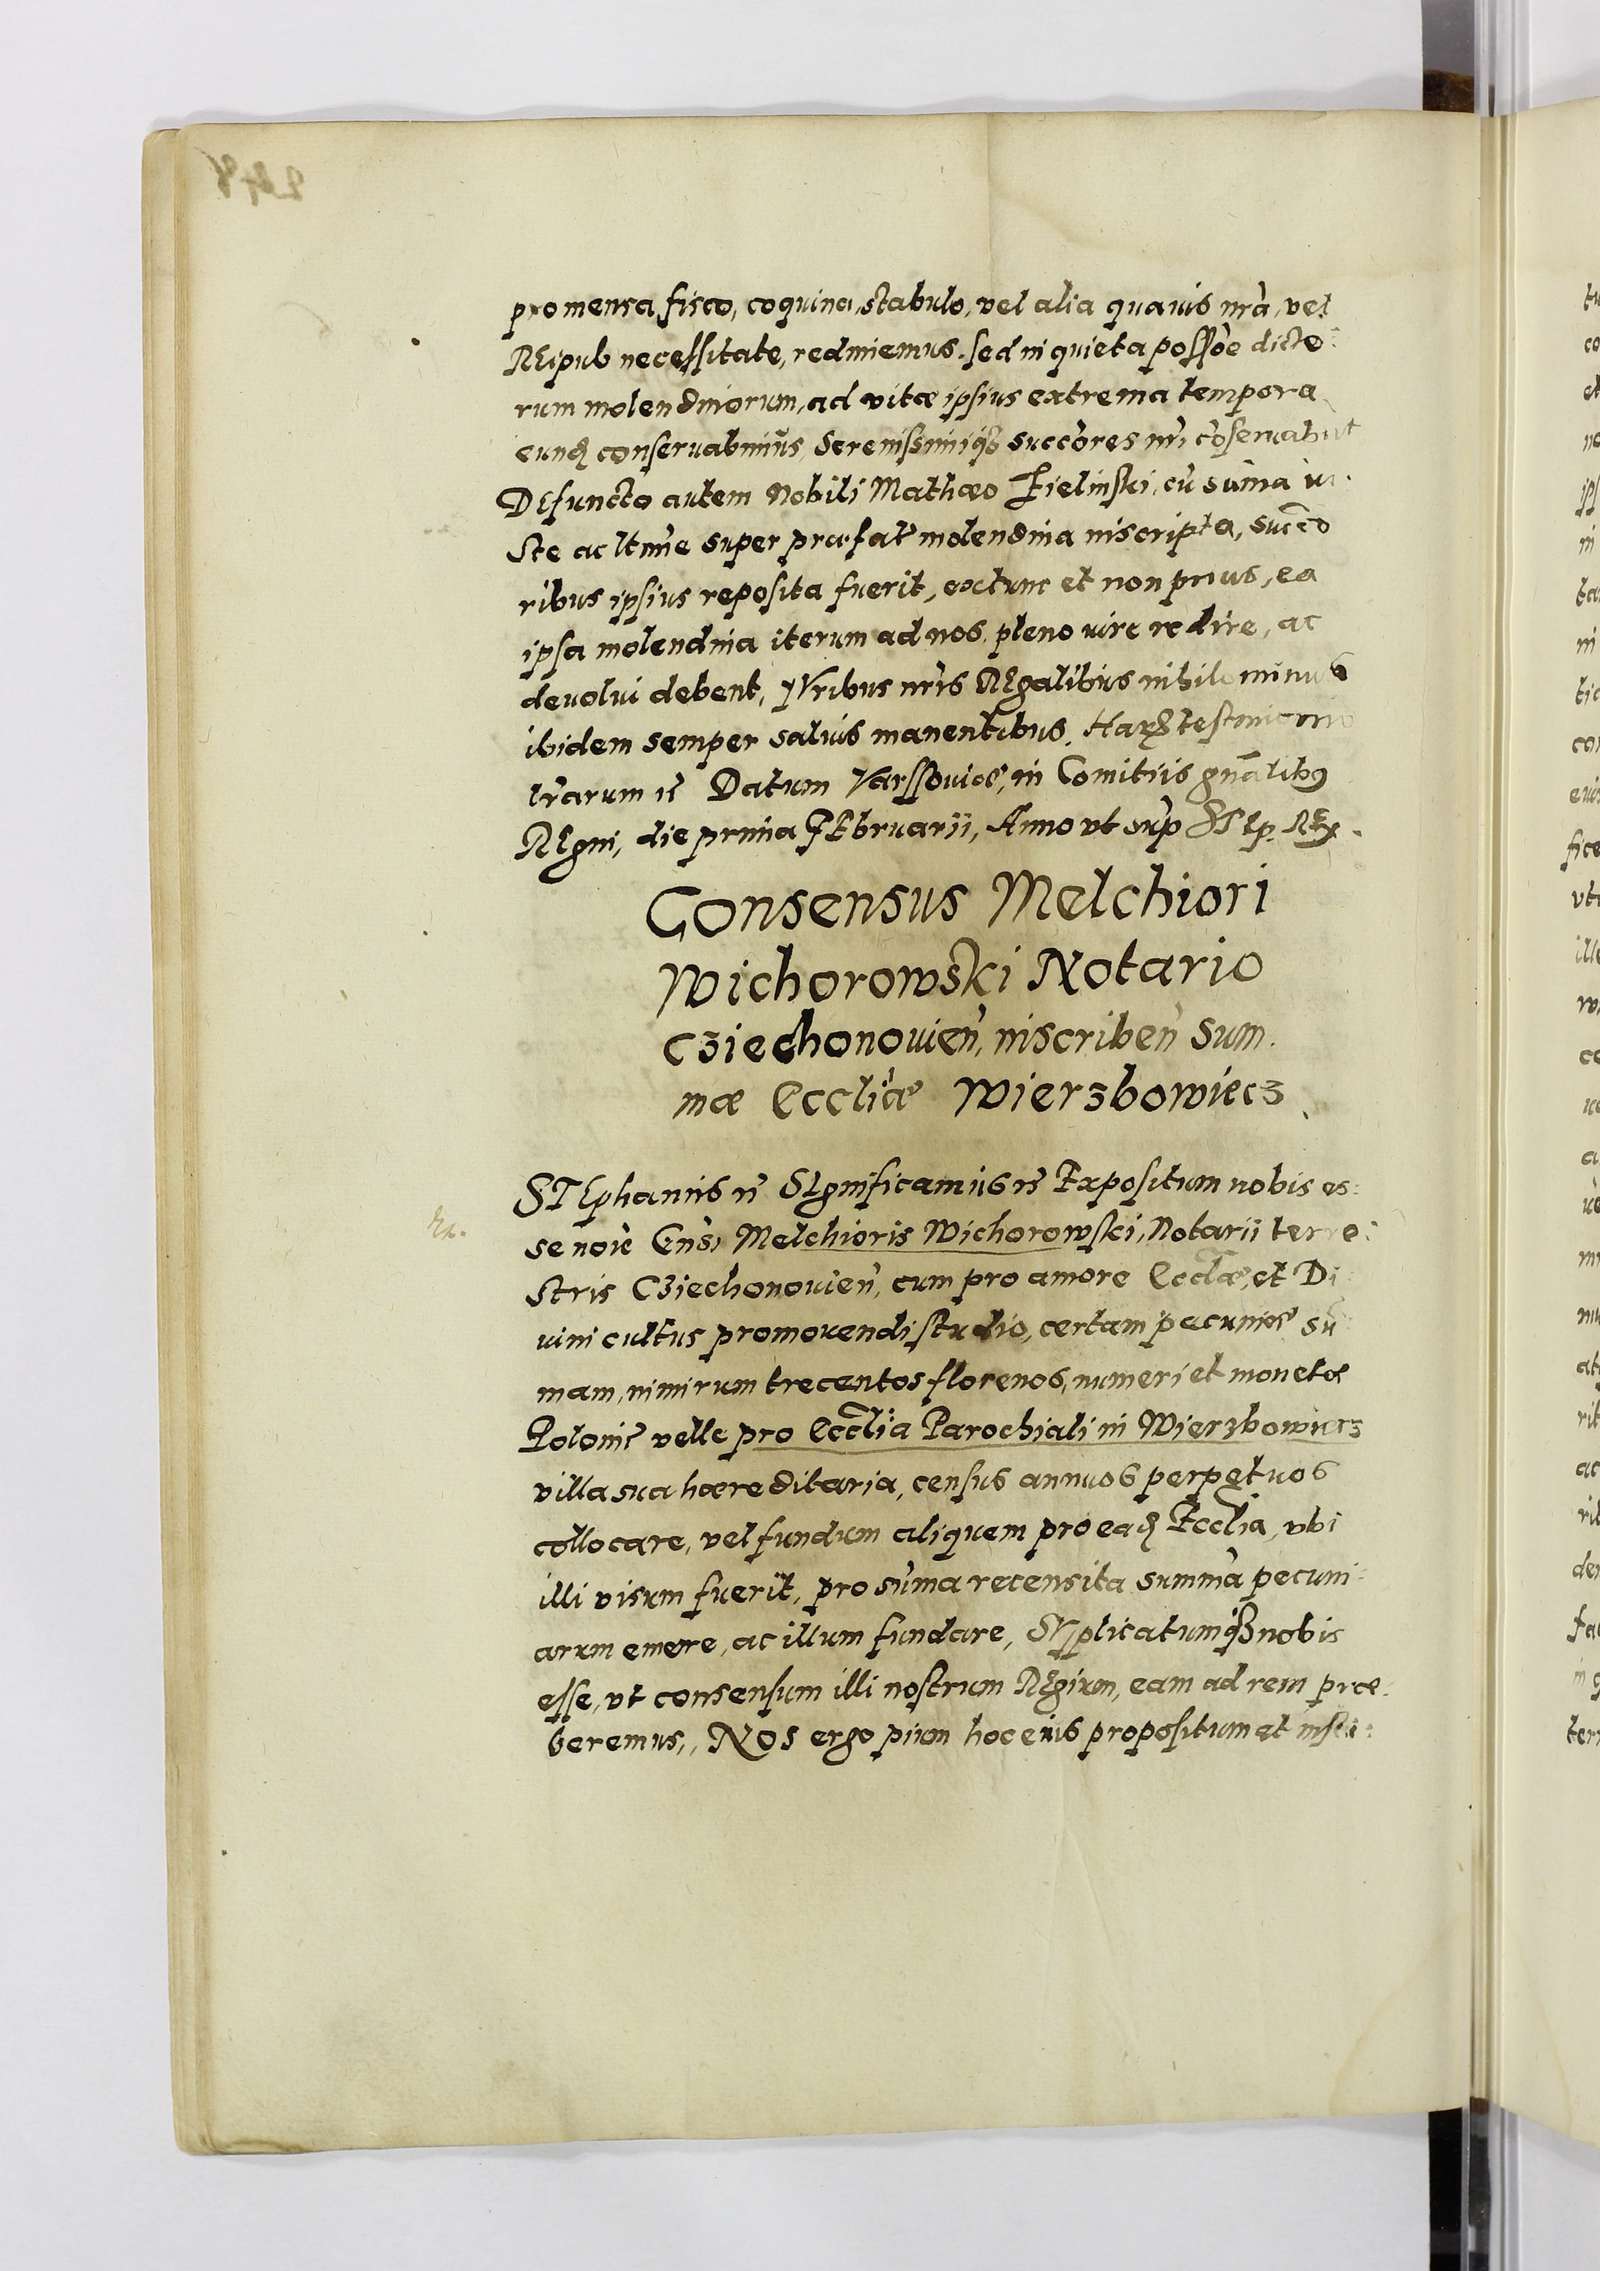 pro mensa fisco, coquina, stabulo, vel alia quauis nrà, vel
REipub necessitate, redimemus. sed in quieta possoe dicto:
rum molendinorum, ad vitæ ipsius extrema tempora
eundq conseruabimus, Serenissimiq succores nri coseruabut
DEfuncto autem Nobili Mathæo Zielinski, cū sūma iu:
ste ac ltime super præfat molendina inscripta, succeo
ribus ipsius reposita fuerit, extunc et non prius, ea
ipsa molendina iterum ad nos pleno iure redire, ac
deuolui debent, IVribus nris REgalibus nihilominus
ibidem semper saluis manentibus. Harz testimonio
lrarum rc Datum Varssouiæ, in Comitiis gnalibq
REgni, die prima FEbruarii, Anno vt sup STEp. REx.
Consensus Melchiori
Wichorowski Notario
Cziechonouien, inscriben Sum.
mæ Eccliæ Wierzbowiecz
STEphanus rc SIgnificamus rc Expositum nobis es:
se noie Gnsi Melchioris Wichorowski, Notarii terre:
stris Cziechonouien, cum pro amore Eccliæ, et Di
uini cultus promouendi studio, certam pecuniæ sū
mam, nimirum trecentos florenos, numeri et monetæ
Polonic velle pro Ecclia Parochiali in Wierzbowiecz
villa sua hæreditaria, census annuos perpetuos
collocare, vel fundum aliquem pro eadq Ecclia, vbi
illi visum fuerit, pro sūma recensita summa pecuni:
arum emere, ac illum fundare, SVpplicatumq nobis
esse, vt consensum illi nostrum REgium, eam ad rem præ:
beremus,, NOS ergo pium hoc eius propositum et insti: